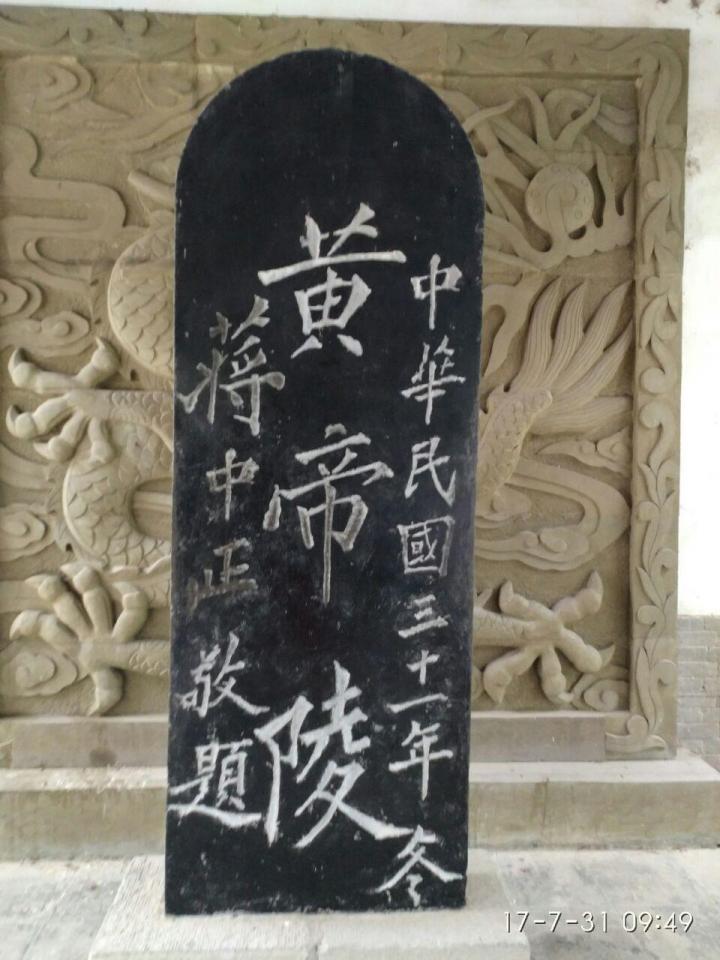 中華民國三十一年冬
黃帝陵
蔣中正敬題
17-7-31 09:49